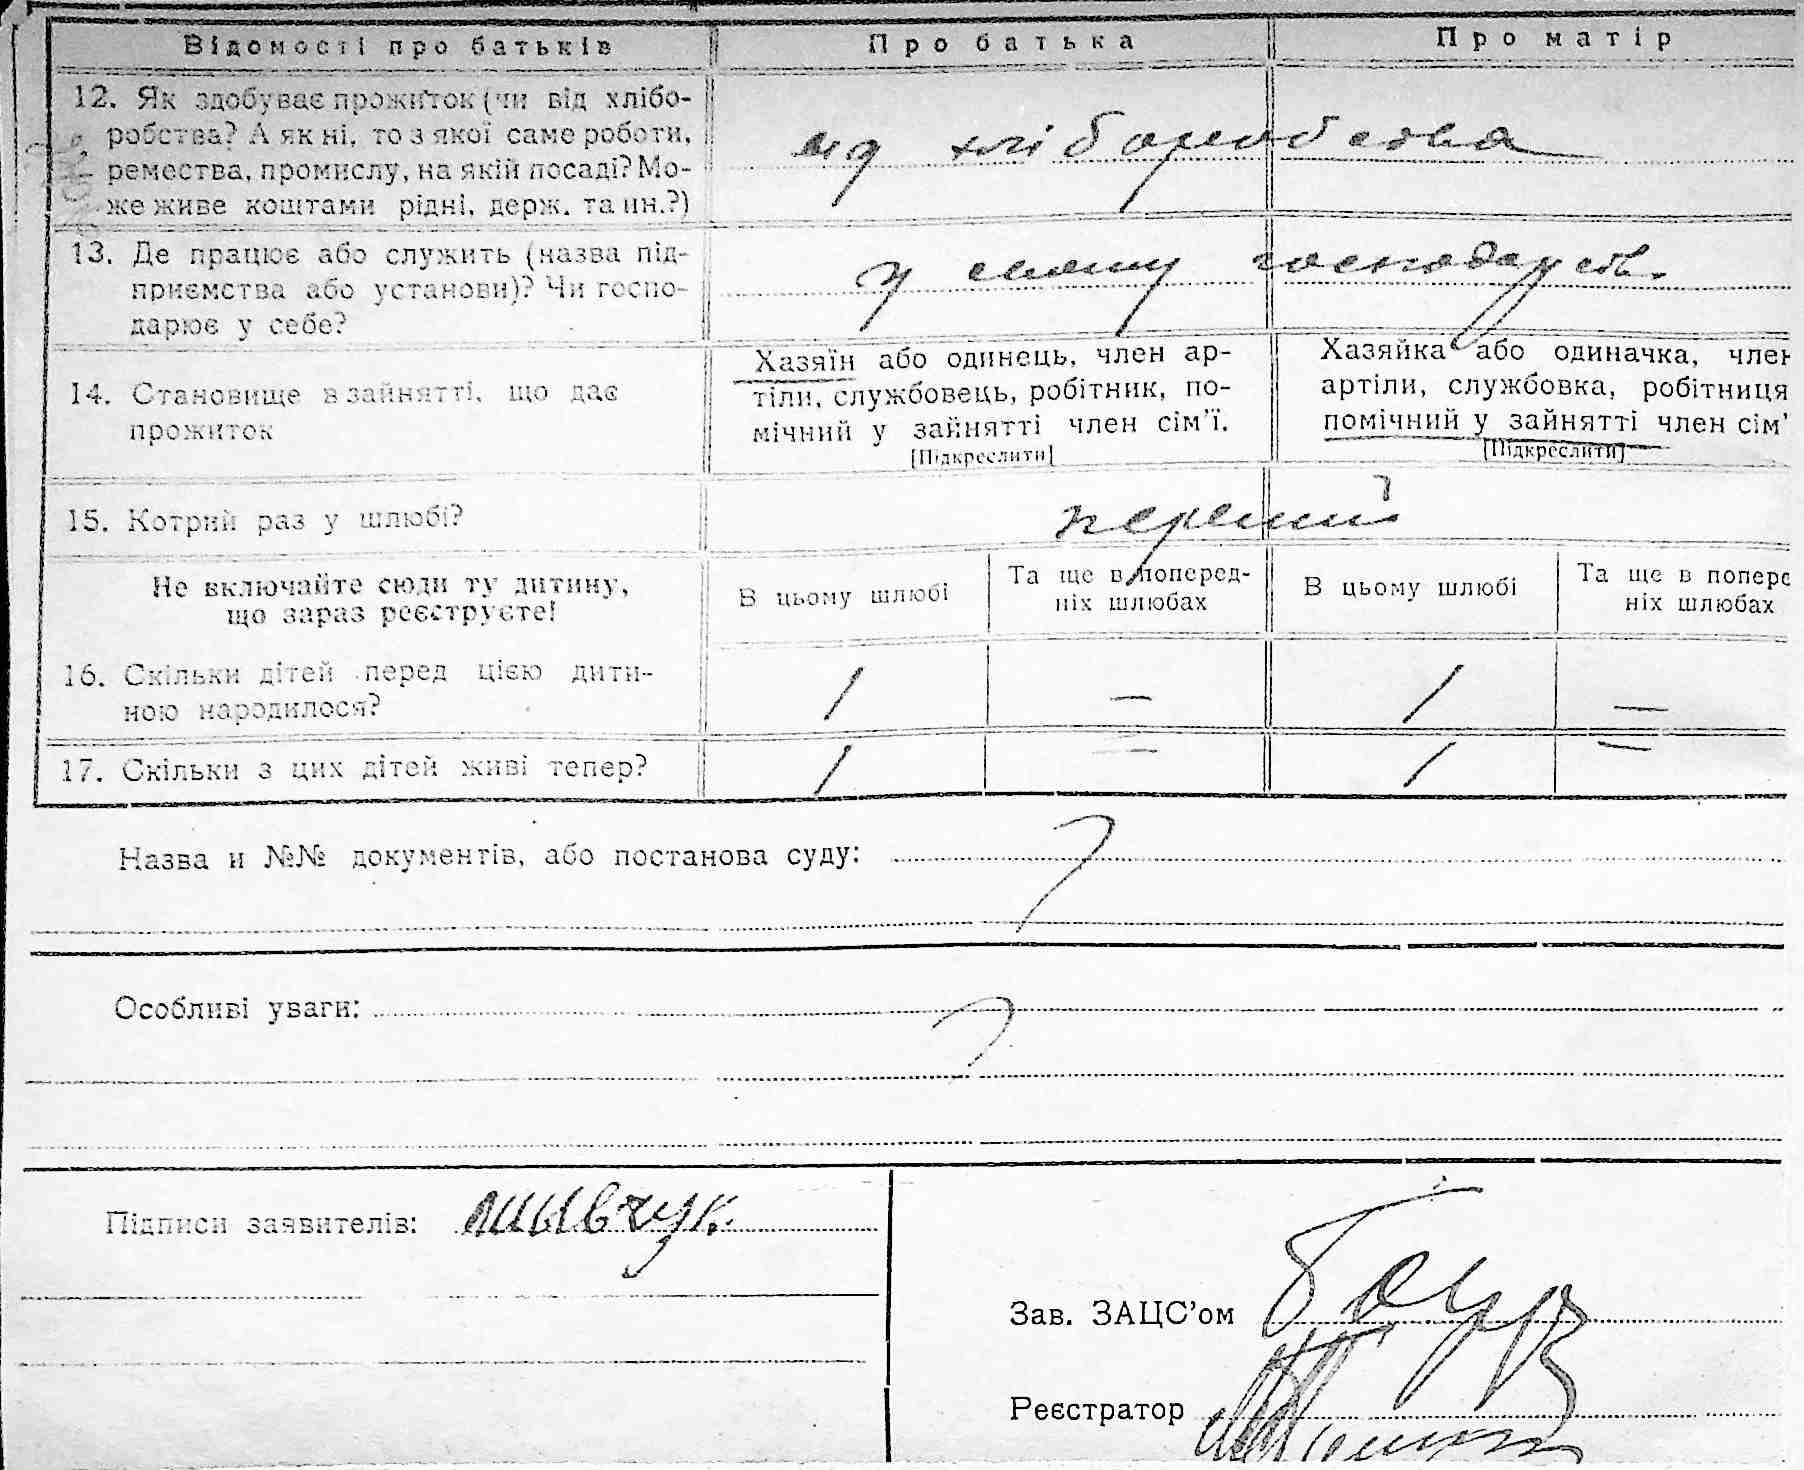 Відомості про батьків Про батька Про матір
12. Як здобуває прожиток (чи від хлібо-
робства? А як ні, то з якої саме роботи,
ремества, промислу, на якій посаді? Мо-
же живе коштами рідні, держ. та ин.?)
від хліборобства
13. Де працює або служить (назва під-
приємства або установи)? Чи госпо-
дарює у себе?
у своему господарстві
14. Становище в зайнятті, що дає
прожиток
Хазяїн або одинець, член ар-
тіли, службовець, робітник, по-
мічний у зайнятті член сім'ї.
[Підкреслити]
Хазяйка або одиначка, член
артіли, службовка, робітниця
помічний у зайнятті член сім'
[Підкреслити]
15. Котрий раз у шлюбі?
перший
Не включайте сюди ту дитину,
що зараз реєструєте!
В цьому шлюбі
Та ще в поперед-
ніх шлюбах
В цьому шлюбі
Та ще в попере
ніх шлюбах
16. Скільки дітей перед цією дити-
ною народилося?
1 — 1 —
17. Скільки з цих дітей живі тепер?
1 — 1 —
Назва и №№ документів, або постанова суду:
Особливі уваги:
Підписи заявителів:
Зав. ЗАЦС'ом
Реєстратор